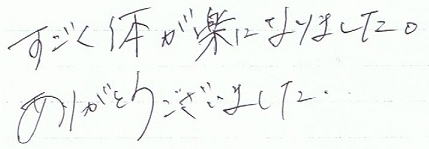 すごく体が楽になりました。
ありがとうございました.